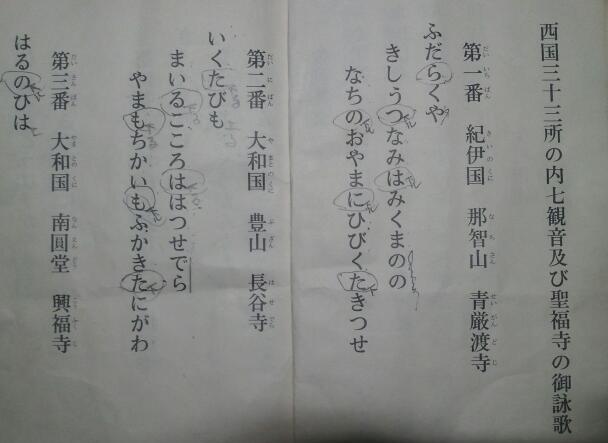 西国三十三所の内七観音及び聖福寺の御詠歌
第一番 紀伊国 那智山 青厳渡寺
ふだらくや
きしうつなみはみくまのの
なちのおやまにひびくたきつせ
第二番 大和国 豊山 長谷寺
いくたびも
まいるこころははつせでら
やまもちかいもふかきたにがわ
第三番 大和国 南圓堂 興福寺
はるのひは